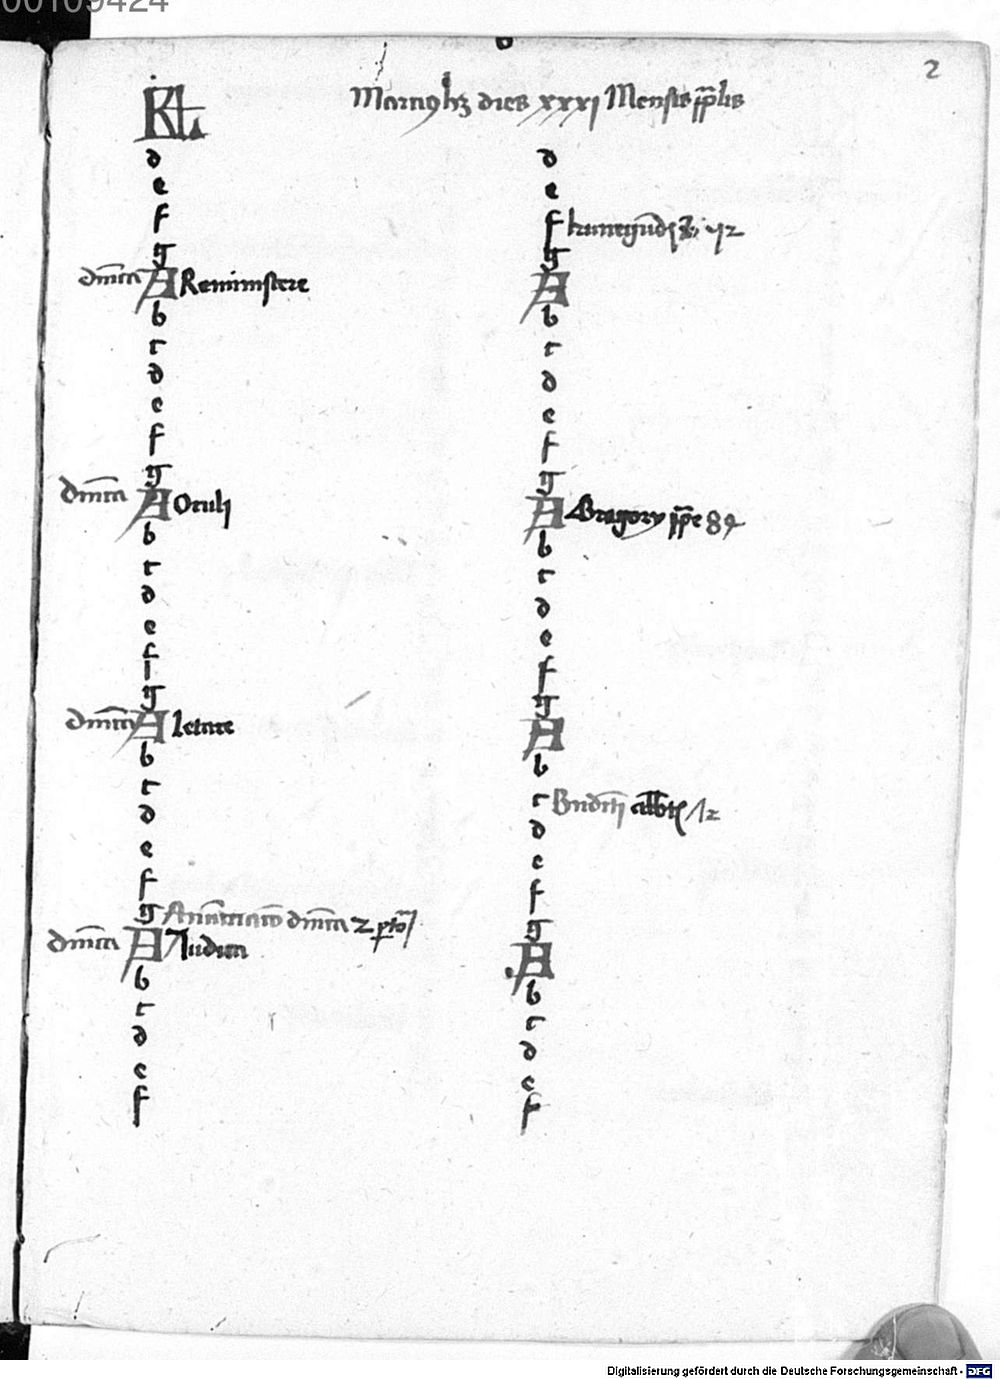 00109424
2
KL Marcius hꝫ dies xxxi Mensis ppͣlis
d
e
f
g
dnīca A Reminiscere
b
c
d
e
f
g
dnīca A Oculi
b
c
d
e
f
g
dnīca A Letare
b
c
d
e
f
g dnīca
dnīca A Judica
b
c
d
e
f
d
e
f kunegūdis
g
A
b
c
d
e
f
g
A Gregory ppe 89
b
c
d
e
f
g
A
b
c abbtis 12
d
e
f
g
A
b
c
d
e
f
Digitalisierung gefördert durch die Deutsche Forschungsgemeinschaft - DFG